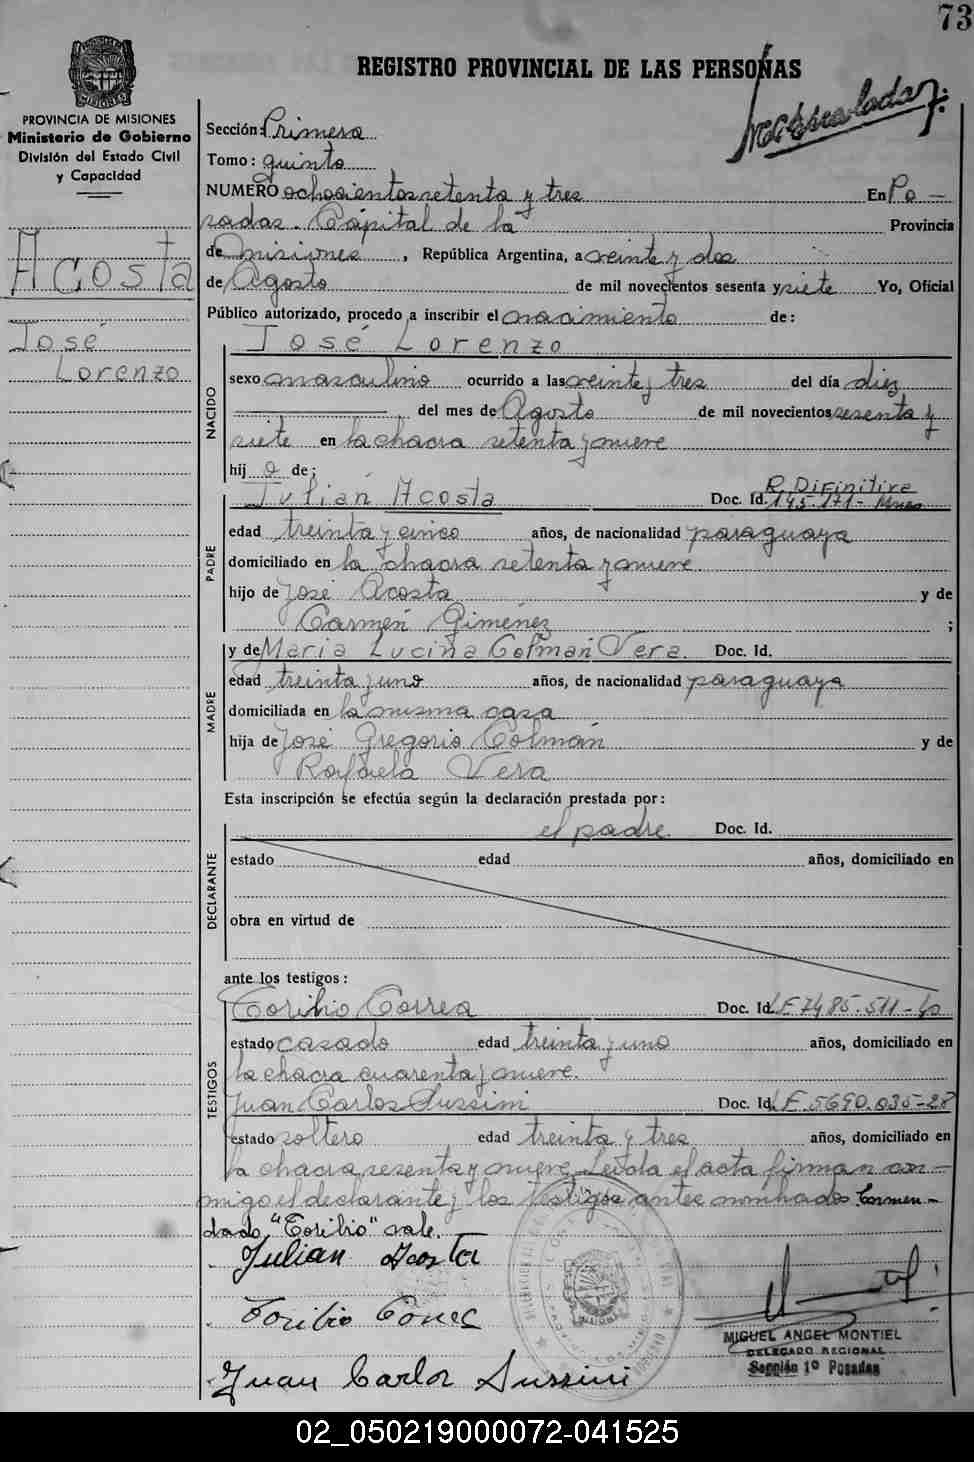 73
REGISTRO PROVINCIAL DE LAS PERSONAS
PROVINCIA DE MISIONES
Ministerio de Gobierno
División del Estado Civil
y Capacidad
Acosta
José
Lorenzo
Sección: Primera
Tomo: quinto
NUMERO ochocientos setenta y tres En Po-
sadas. Cápital de la Provincia
de Misiones, República Argentina, a veinte y dos
de Agosto de mil novecientos sesenta y siete Yo, Oficial
Público autorizado, procedo a inscribir el nacimiento de:
José Lorenzo
NACIDO
sexo masculino ocurrido a las veinte y tres del día diez
del mes de Agosto de mil novecientos sesenta y
siete en la chacra setenta y nueve
hijo de:
PADRE
Julián Acosta Doc. Id. R. Difinitiva
145.171- Mnes
edad treinta y cinco años, de nacionalidad paraguaya
domiciliado en la chacra setenta y nueve.
hijo de José Acosta y de
Carmén Giménez ;
MADRE
y de Maria Lucina Colman Vera. Doc. Id.
edad treinta y uno años, de nacionalidad paraguaya
domiciliada en la misma casa
hija de José Gregorio Colmán y de
Rafaela Vera
Esta inscripción se efectúa según la declaración prestada por:
DECLARANTE
el padre Doc. Id.
estado edad años, domiciliado en
obra en virtud de
ante los testigos:
TESTIGOS
Toribio Correa Doc. Id. LE 7485.511-
estado casado edad treinta y uno años, domiciliado en
la chacra cuarenta y nueve.
Juan Carlos Sussini Doc. Id. LE.5690.035-28
estado soltero edad treinta y tres años, domiciliado en
la chacra sesenta y nueve Leida el acta firman con-
migo el declarante y los testigos antes nombrados Enmen-
dado "Toribio" vale.
Julian Acosta
Toribio Correa
Juan Carlos Sussini
MIGUEL ANGEL MONTIEL
DELEGADO REGIONAL
Sección 1º Posadas
02_050219000072-041525